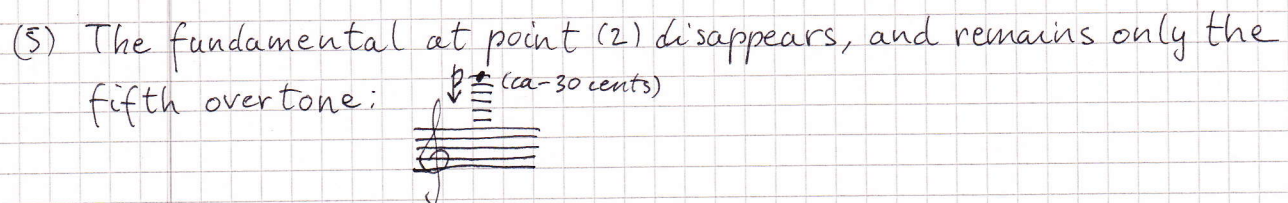 (5) The fundamental at point (2) disappears, and remains only the
fifth overtone: (ca-30 cents)